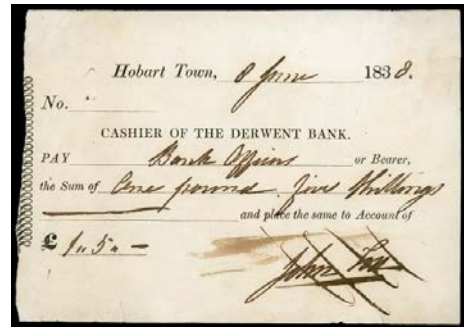 Hobart Town, 8 June 1838.
No.
CASHIER OF THE DERWENT BANK.
PAY Bank Officers or Bearer,
the Sum of One pound five Shillings
and place the same to Account of
£ 1,, 5,, —
John